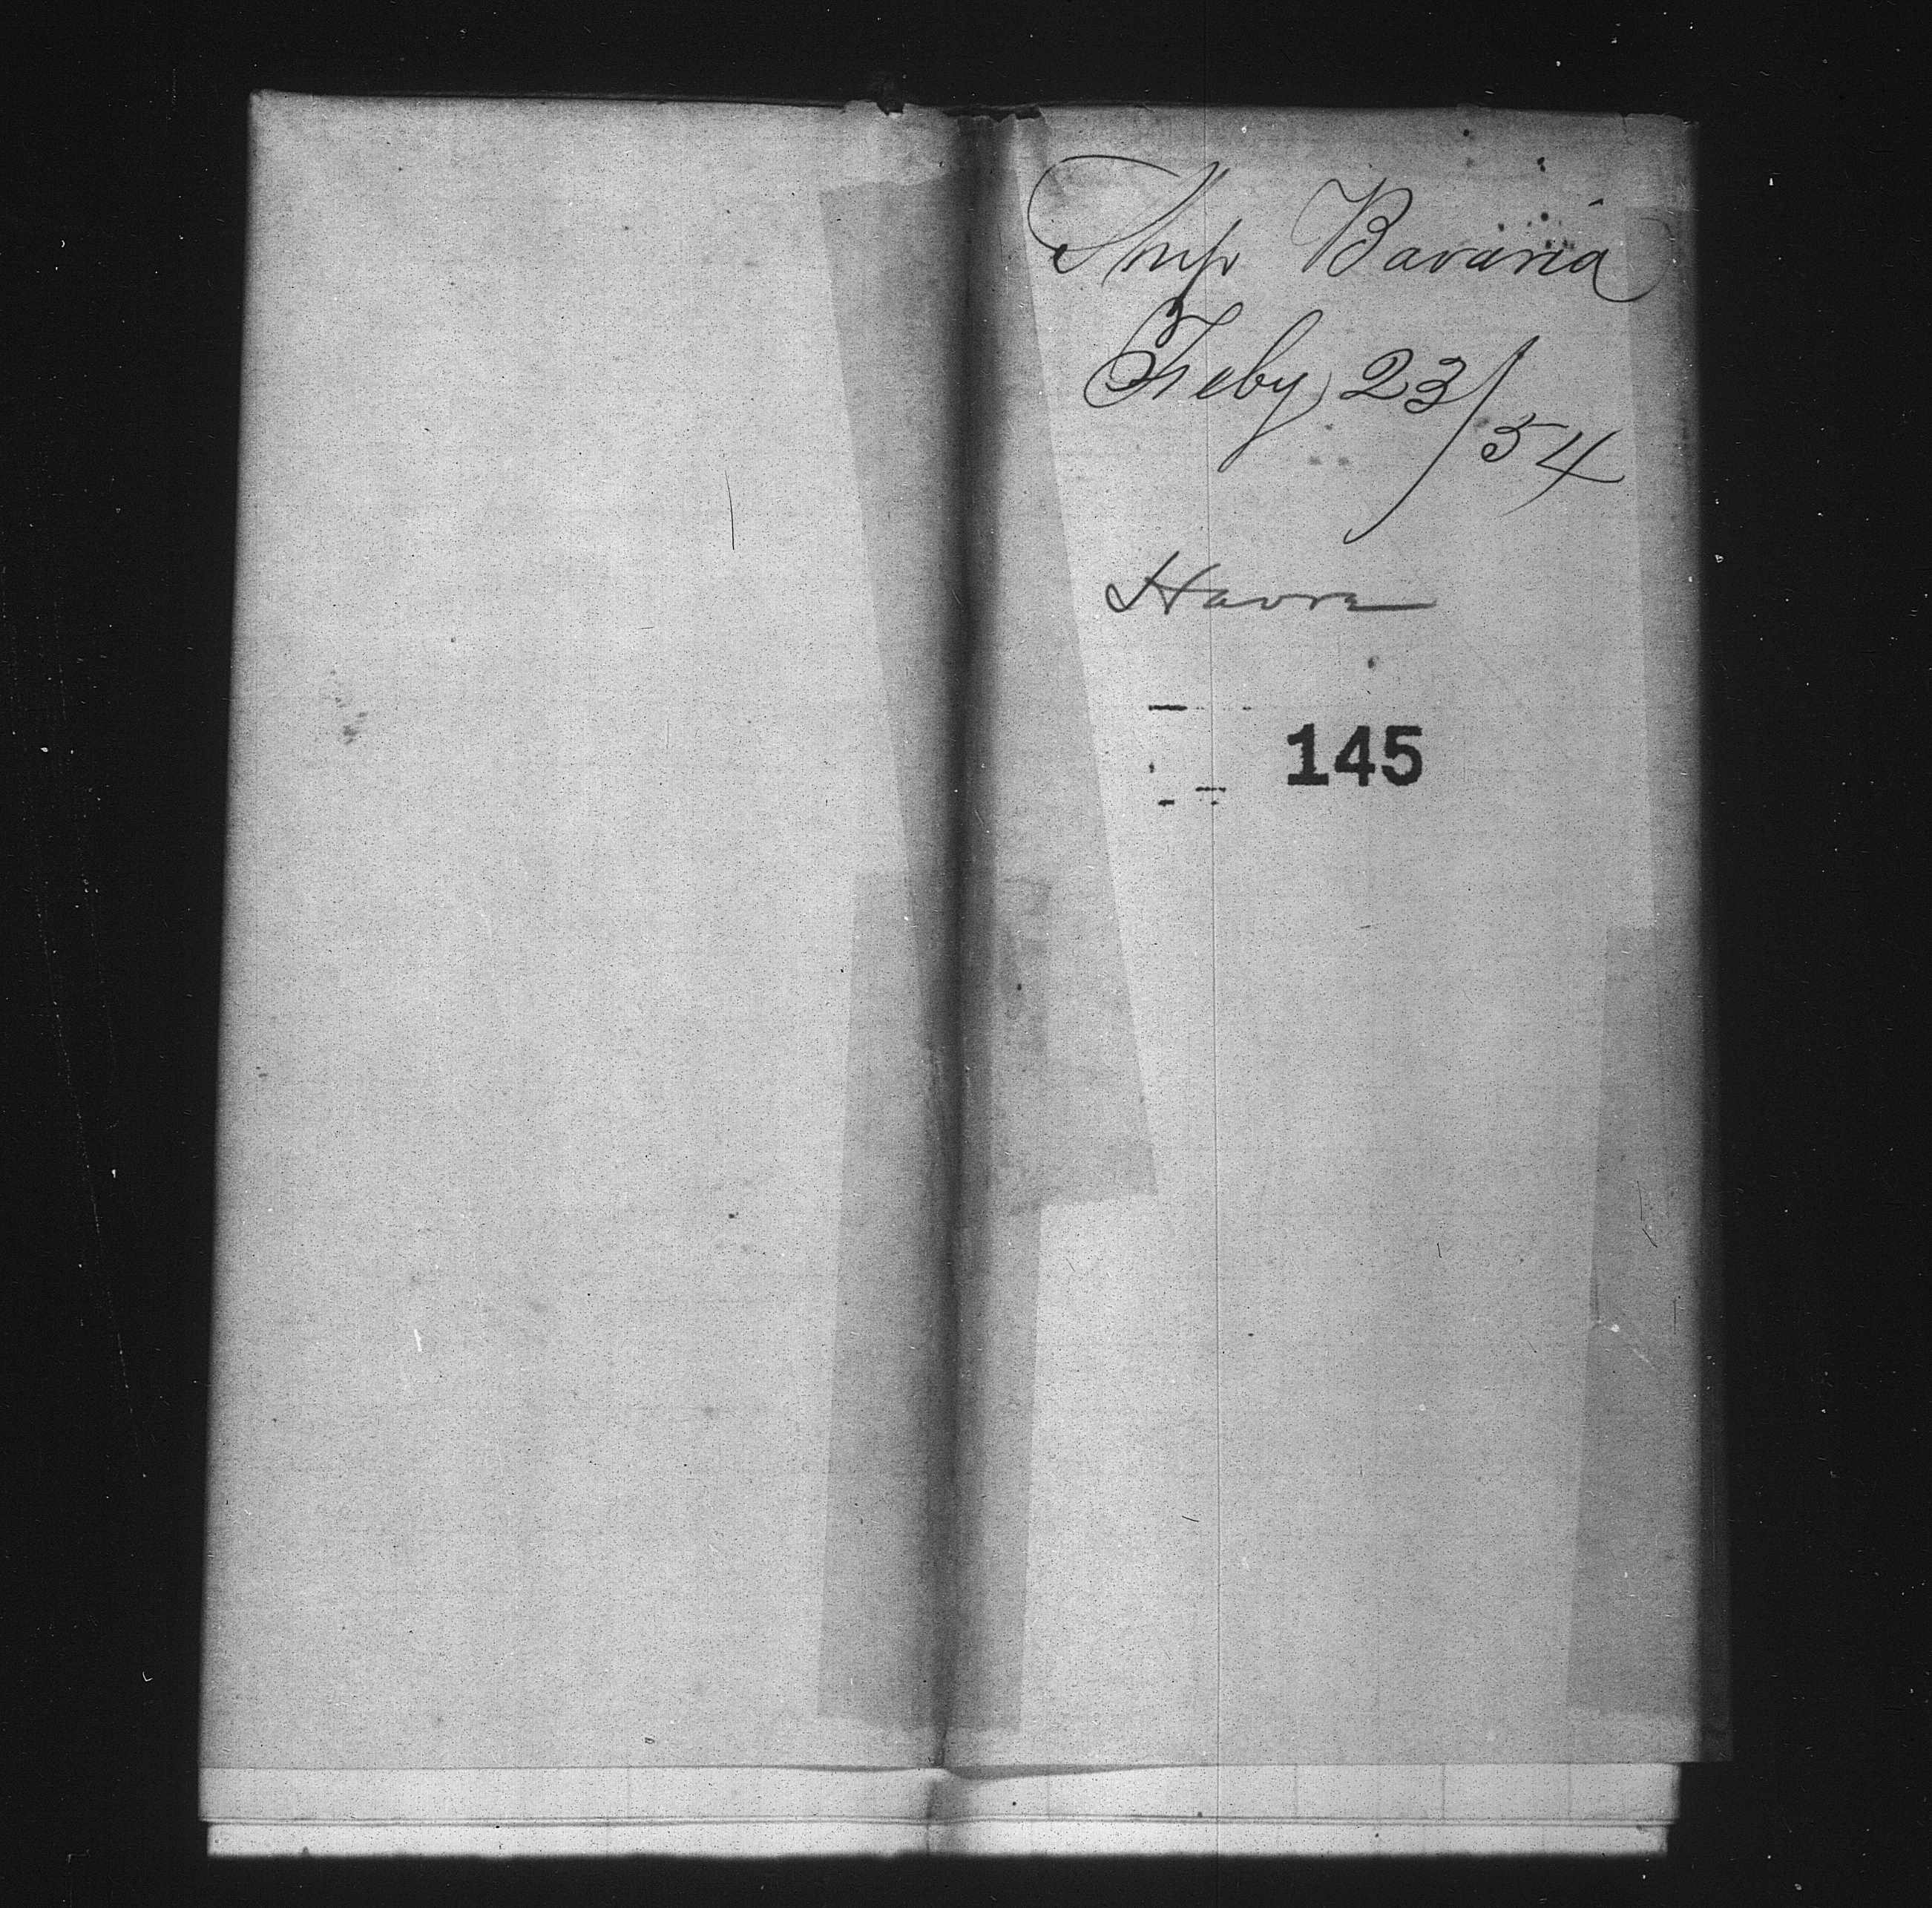 Ship Bavaria
Feby 23/54
Havre
145